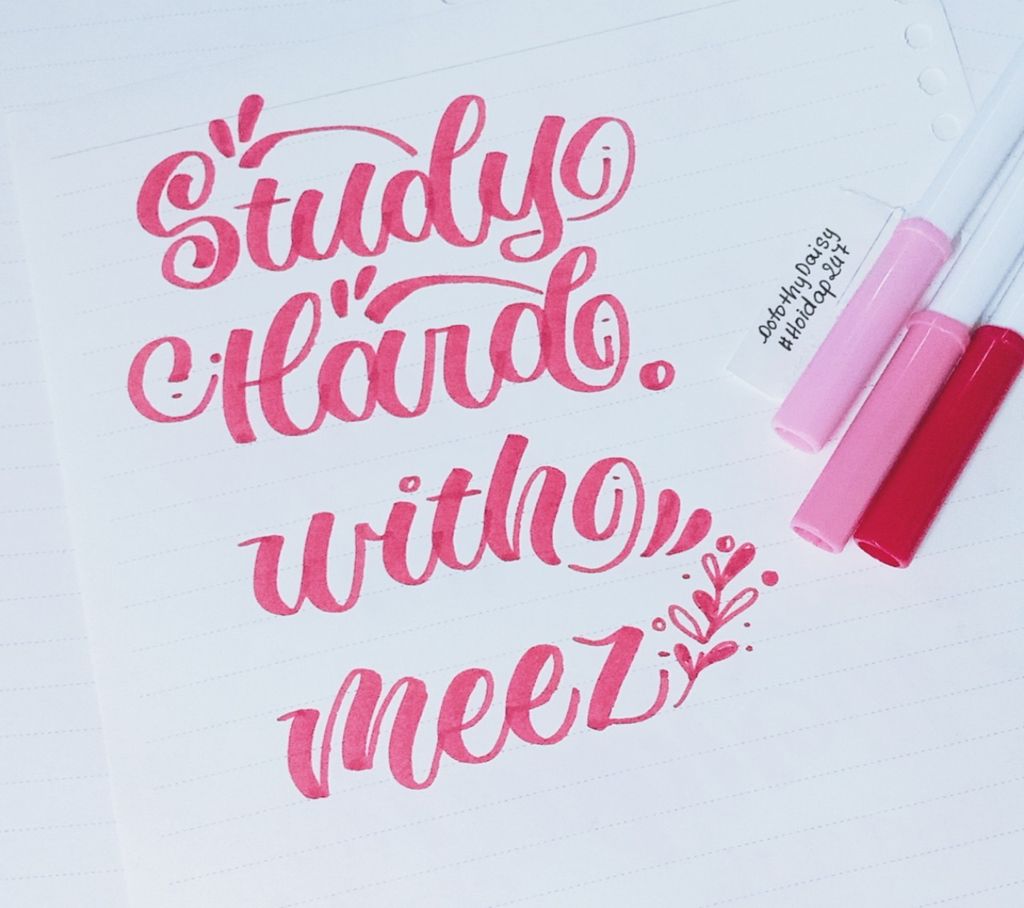 Study
Hard.
with
meez
DotothyDaisy
#Hoidap247